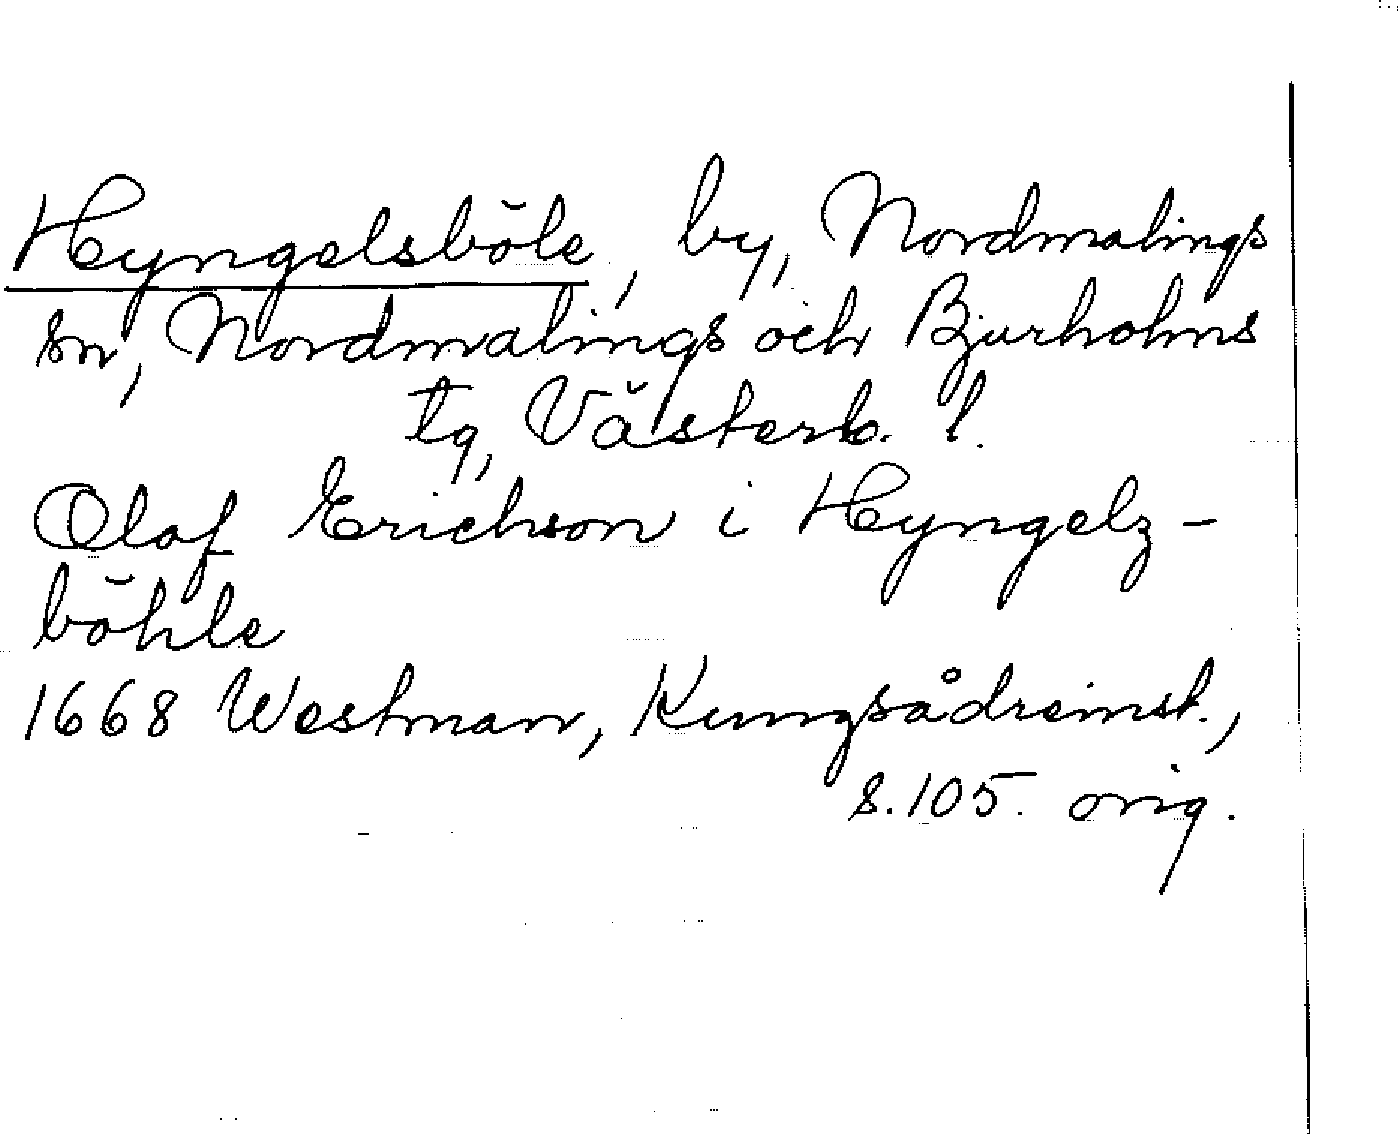 Hyngelsböle, by, Nordmalings
sn, Nordmalings och Bjurholms
tg, Västerb. l.
Olof Erichson i Hyngelz-
böhle
1668 Westman, Kungsådreinst.,
s. 105. orig.